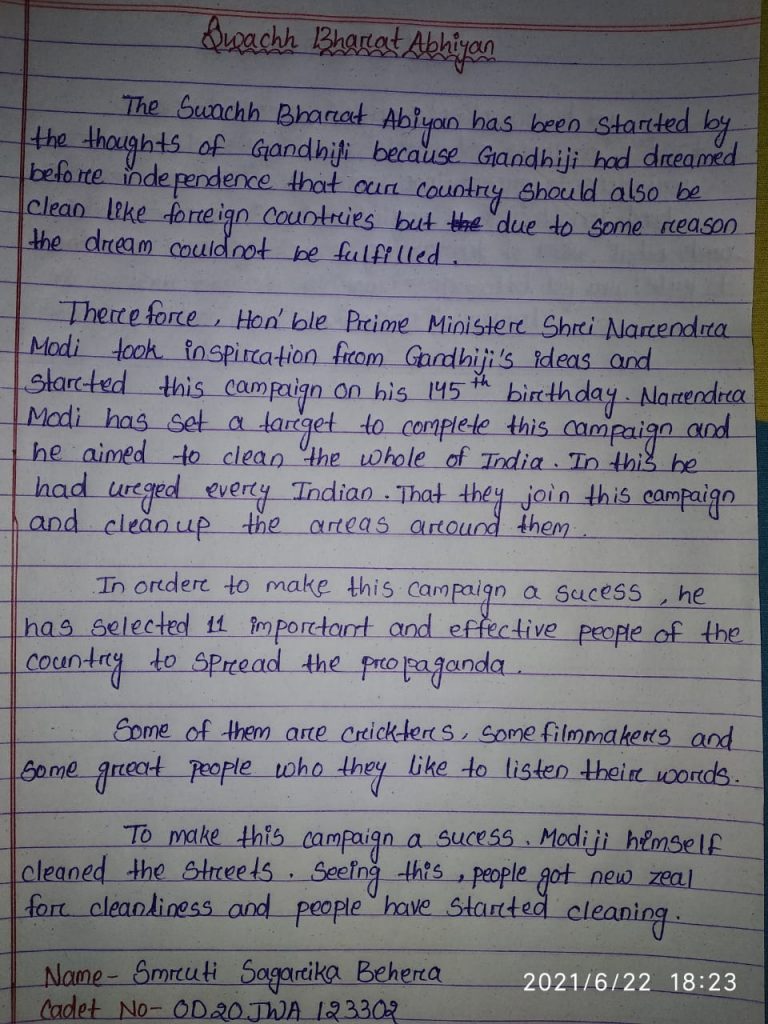 Swachh Bharat Abhiyan
The Swachh Bharat Abiyan has been started by
the thoughts of Gandhiji because Gandhiji had dreamed
before independence that our country should also be
clean like foreign countries but the due to some reason
the dream couldnot be fulfilled.
Therefore, Hon'ble Prime Minister Shri Narendra
Modi took inspiration from Gandhiji's ideas and
started this campaign on his 145th birthday. Narendra
Modi has set a target to complete this campaign and
he aimed to clean the whole of India. In this he
had urged every Indian. That they join this campaign
and cleanup the areas around them.
In order to make this campaign a sucess, he
has selected 11 important and effective people of the
country to spread the propaganda.
Some of them are crickters, some filmmakers and
some great people who they like to listen their words.
To make this campaign a sucess. Modiji himself
cleaned the streets. Seeing this, people got new zeal
for cleanliness and people have started cleaning.
Name- Smruti Sagarika Behera
Cadet No- OD20JWA 123302
2021/6/22 18:23